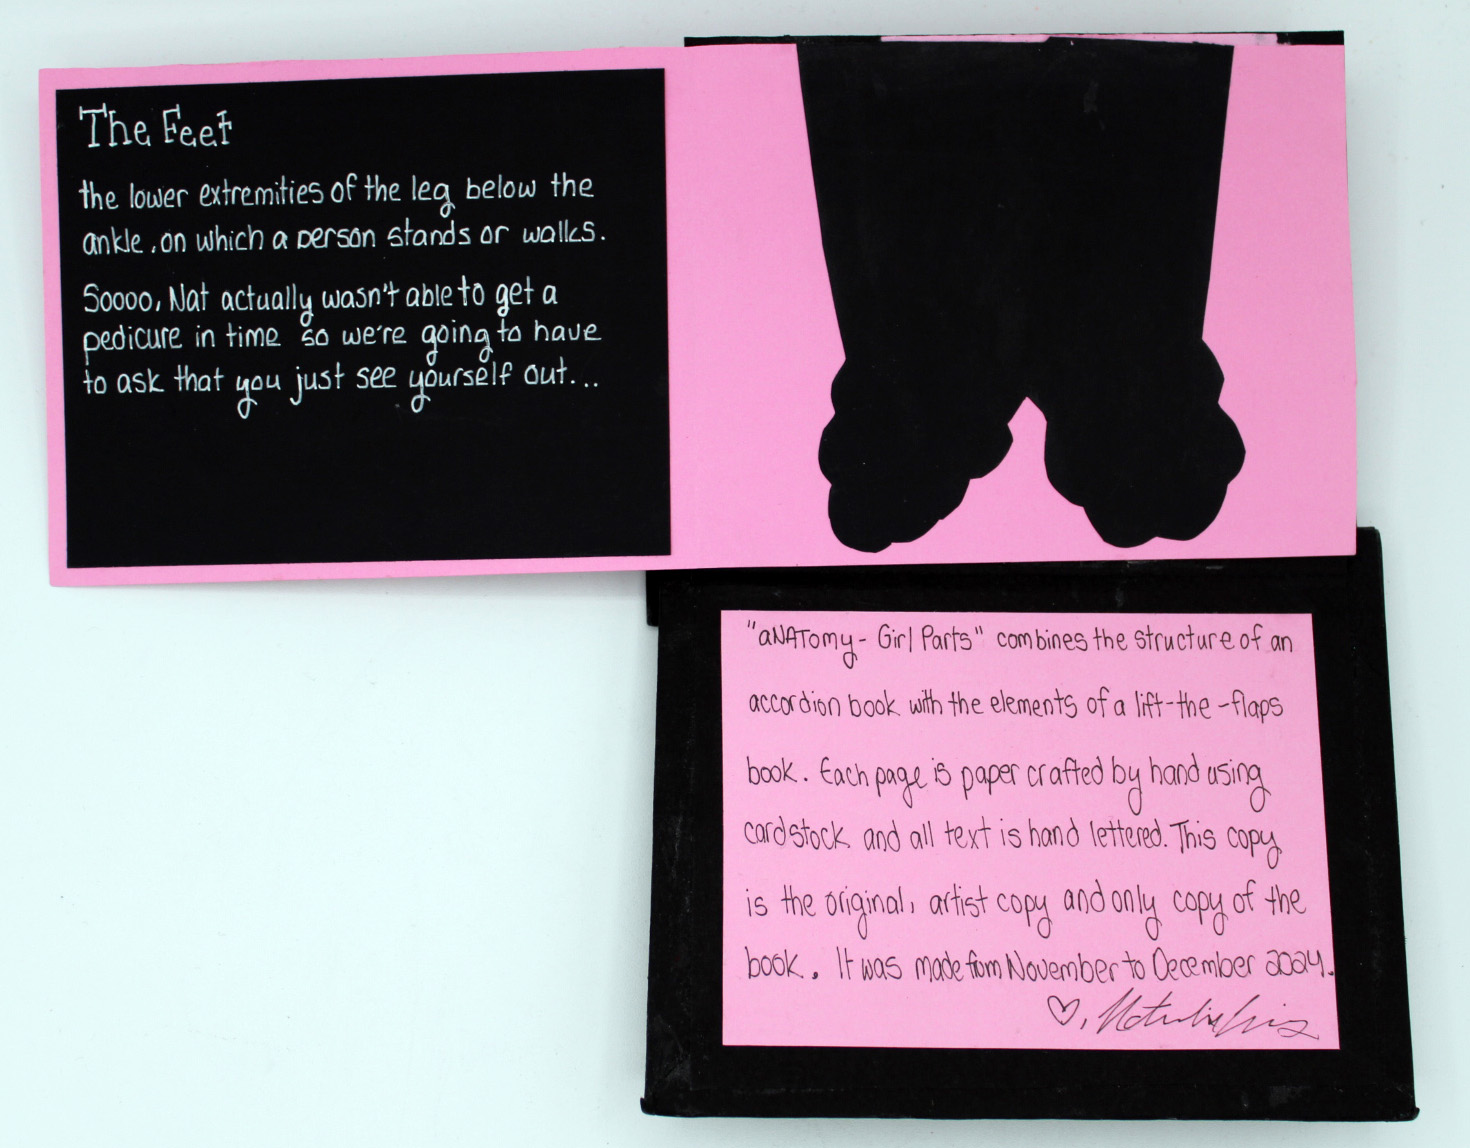 The Feet
the lower extremities of the leg below the
ankle, on which a person stands or walks.
Soooo, Nat actually wasn't able to get a
pedicure in time so we're going to have
to ask that you just see yourself out...
"aNATomy - Girl Parts" combines the structure of an
accordion book with the elements of a lift-the-flaps
book. Each page is paper crafted by hand using
cardstock and all text is hand lettered. This copy
is the original, artist copy and only copy of the
book. It was made from November to December 2024.
♡,